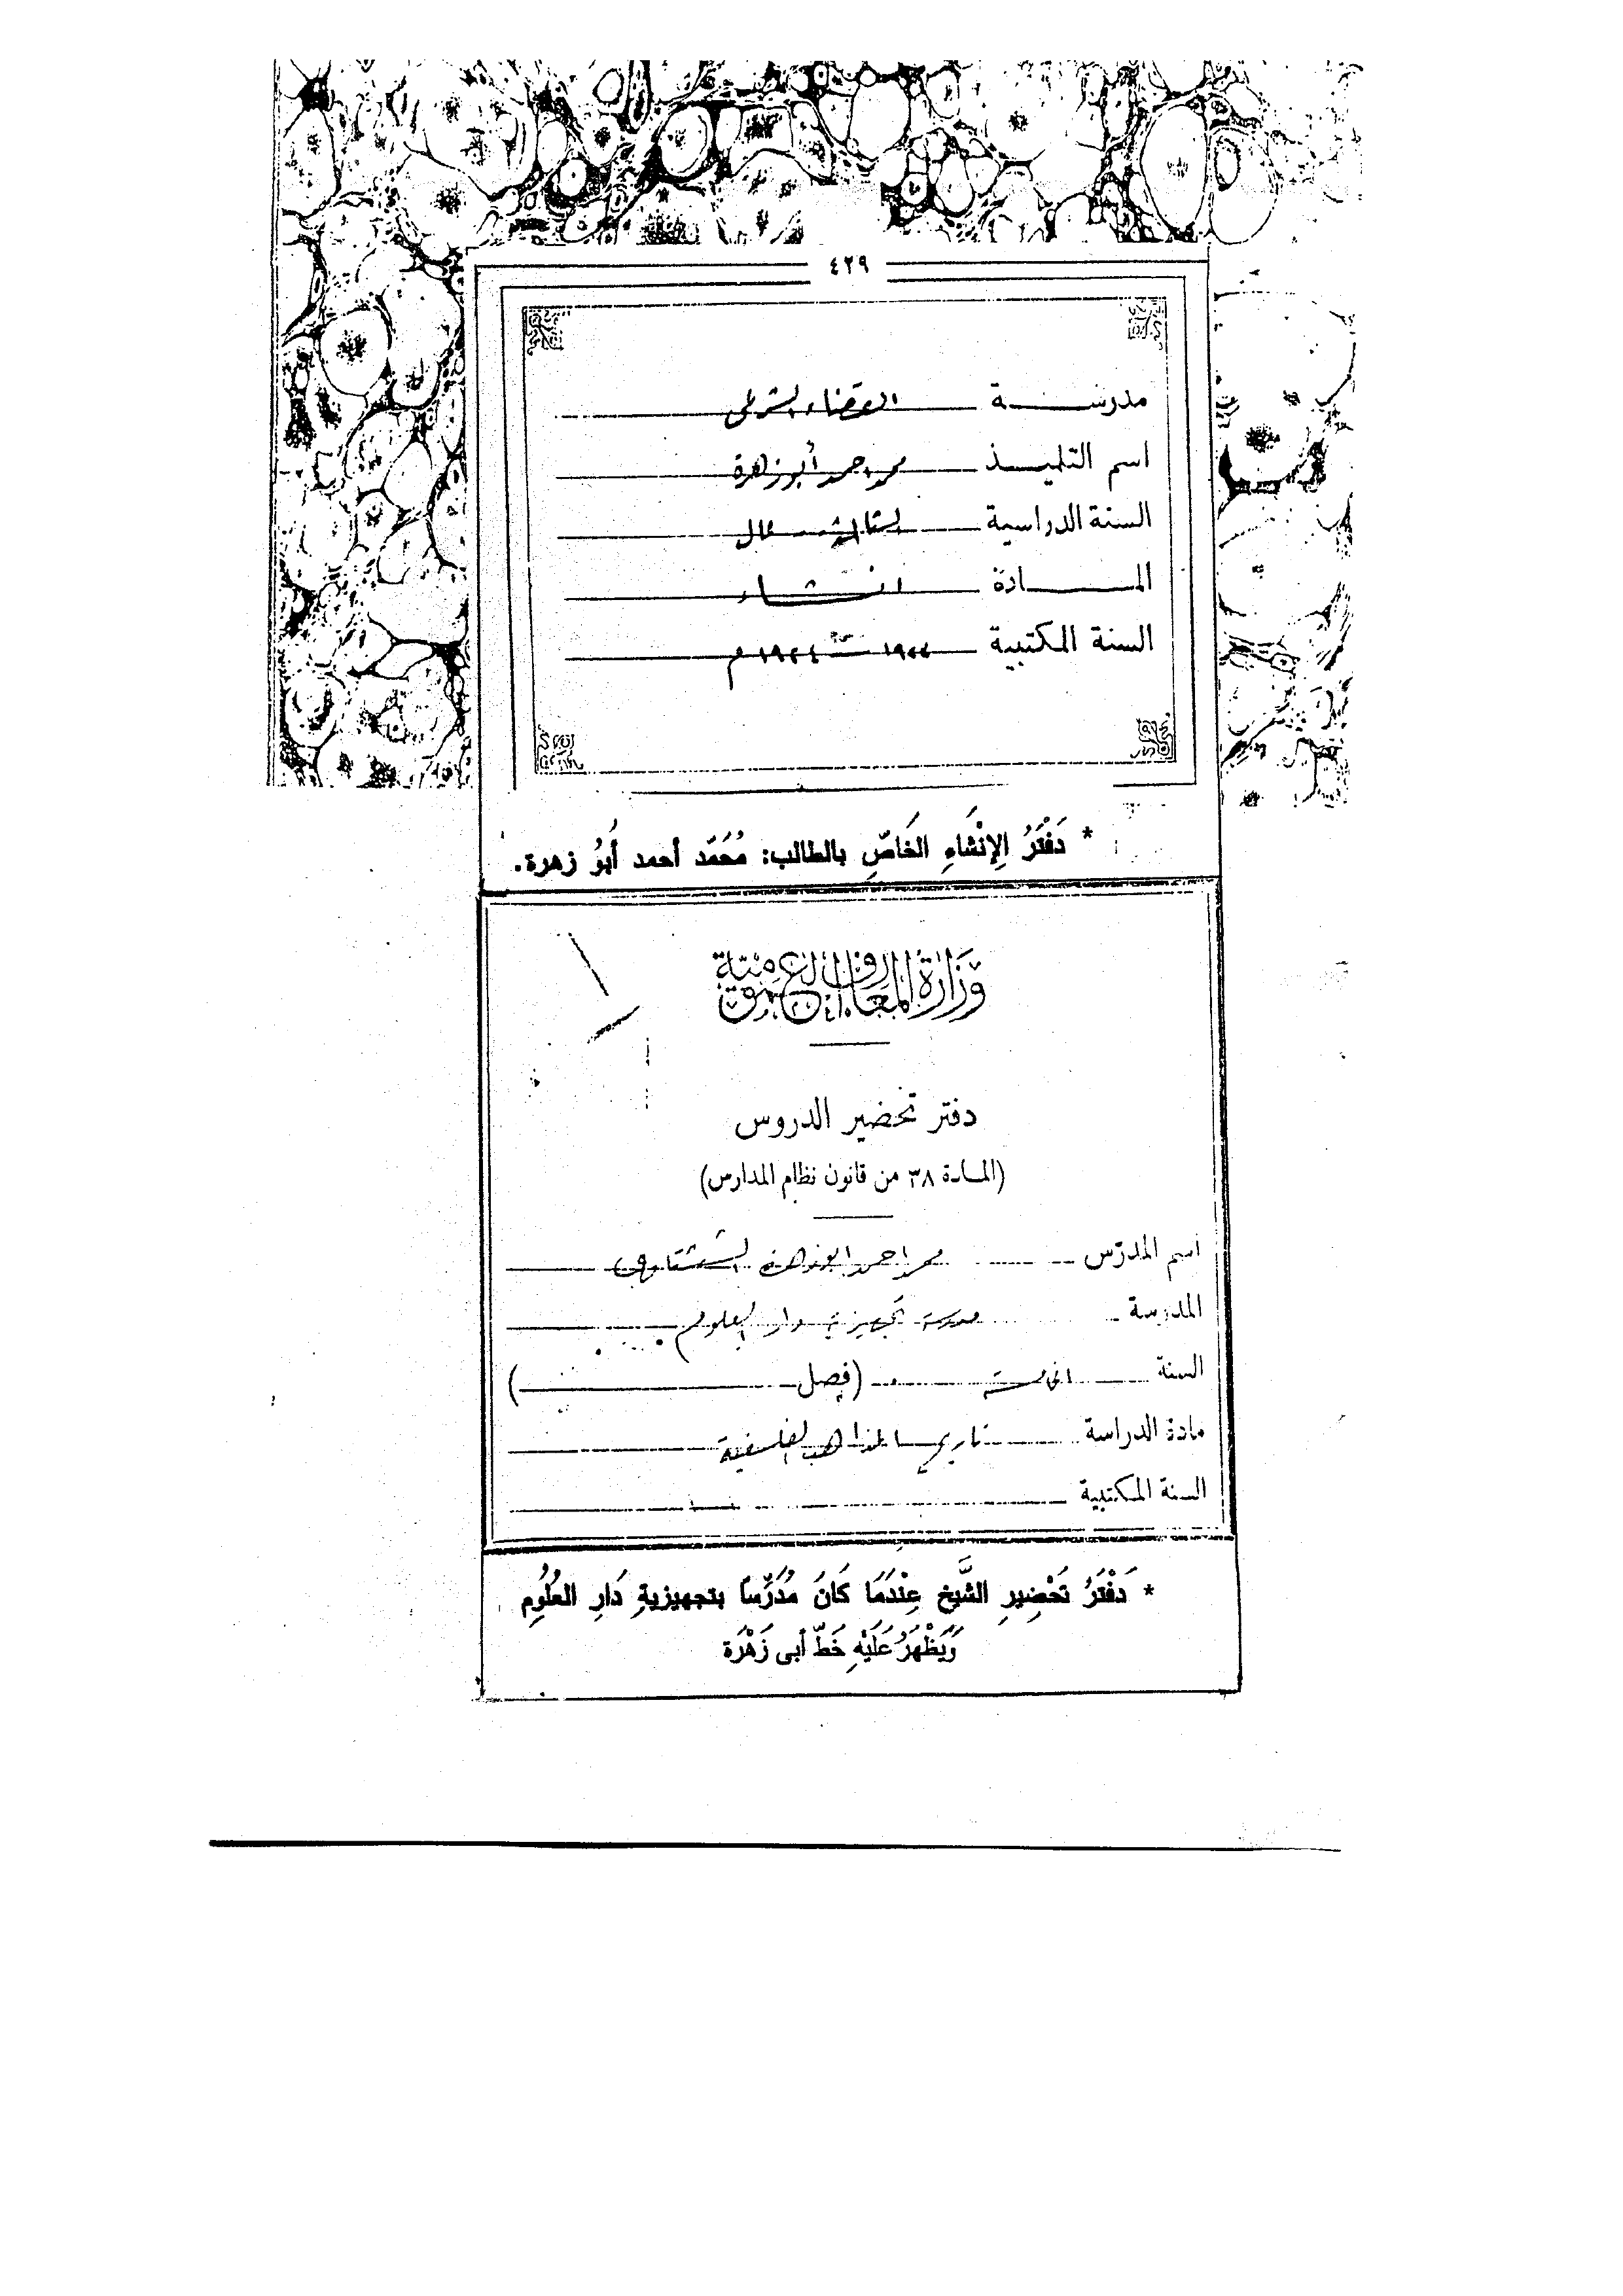 ٤٢٩
مدرســـة القضاء الشرعى
اسم التلميـــذ محمد احمد أبو زهرة
السنة الدراسية الثالثة عال
المـــــادة انشاء
السنة المكتبية ١٩٢٣ - ١٩٢٤ م
* دَفْتَرُ الإِنْشَاءِ الخَاصّ بالطالب: مُحَمّد أحمد أَبوُ زهرة.
وزارة المعارف العمومية
دفتر تحضير الدروس
(المادة ٣٨ من قانون نظام المدارس)
اسم المدرّس محمد احمد ابو زهرة الششتاوى
المدرسة مدرسة تجهيزية دار العلوم
السنة الخامسة (فصل )
مادة الدراسة تاريخ المذاهب الفلسفية
السنة المكتبية
* دَفْتَرُ تَحْضِيرِ الشَّيخ عِنْدَمَا كَانَ مُدَرّساً بتجهيزيةِ دَارِ العُلُومِ
وَيَظْهَرُ عَلَيْهِ خَطّ أبى زَهْرَة